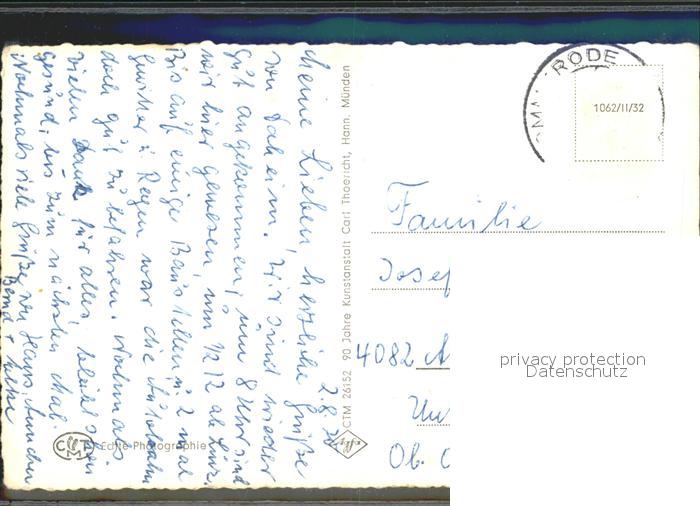 2.8.
Meine Lieben, herzliche Grüße
von daheim. Wir sind wieder
gut angekommen, um 8 Uhr sind
wir hier gewesen, um 1/2 12 ab Linz.
Bis auf einige Baustellen, u. 2 mal
Gewitter u. Regen war die Autobahn
doch gut zu befahren. Nochmals
vielen Dank für alles, bleibt schön
gesund, bis zum nächsten Mal.
Nochmals viele Grüße von Hans, Annchen
Bernd +
CTM 26152 90 Jahre Kunstanstalt Carl Thoericht, Hann. Münden
agfa
CTM Echte Photographie
RODE
1062/II/32
Familie
Josef
4082 A
Un
Ob. O
privacy protection
Datenschutz